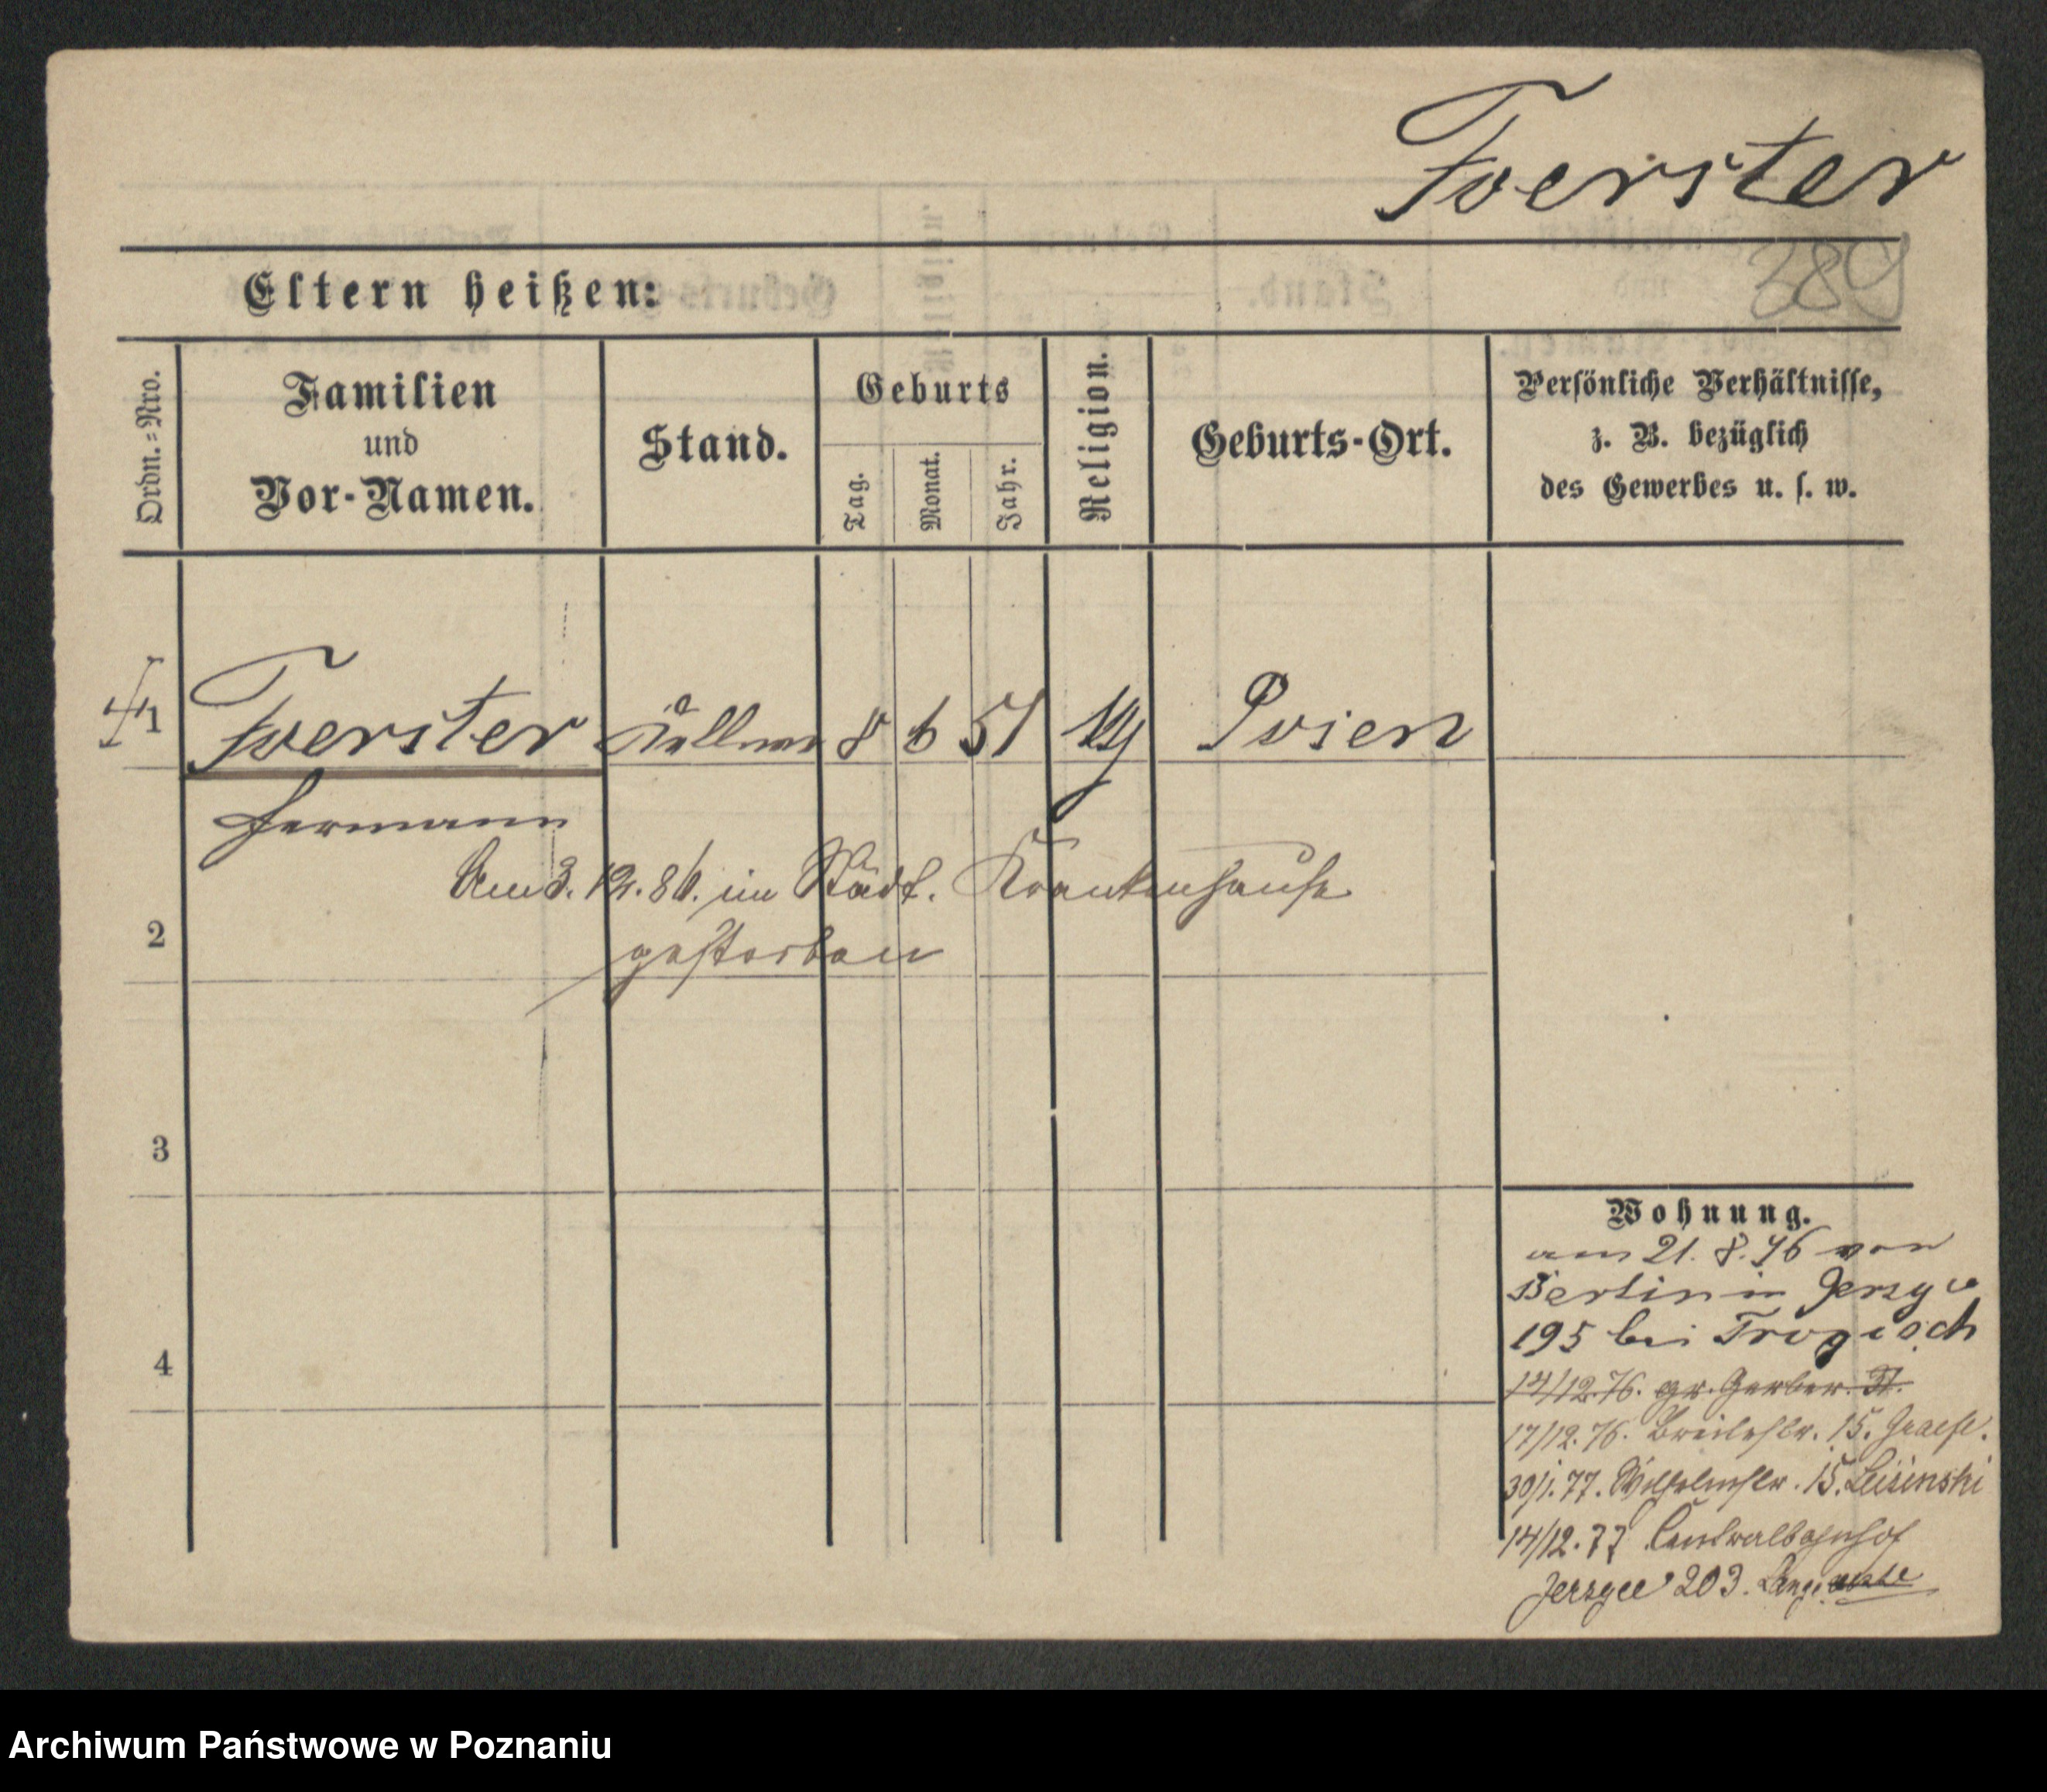 Foerster
289
Eltern heißen:
Ordn.=Nro.
Familien
und
Vor-Namen.
Stand.
Geburts
Tag.
Monat.
Jahr.
Religion.
Geburts-Ort.
Persönliche Verhältnisse,
z. B. bezüglich
des Gewerbes u. s. w.
1 Foerster Kellner 8 6 51 Posen
Hermann
Am 3. 12. 86. im Städt. Krankenhause
gestorben
2
3
4
Wohnung.
am 21. 8. 76 von
Berlin in Jerzyce
195 bei Trogisch
14/12.76. gr. Gerber St.
17/12.76. Breitestr. 15. Graefe.
30/1.77. Wilhelmstr. 15.
14/12.77 Centralbahnhof
Jerzyce 203.
Archiwum Państwowe w Poznaniu